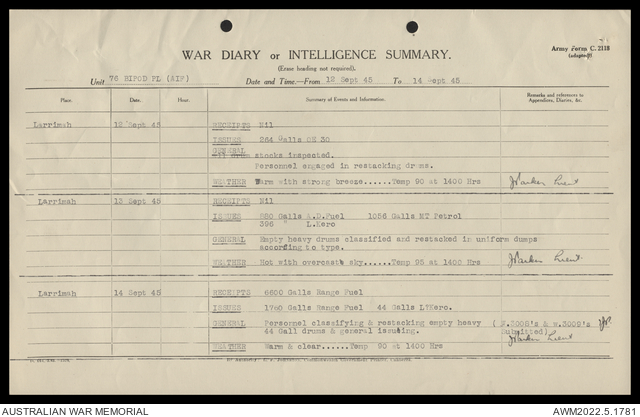 Army Form C. 2118
(adapted)
WAR DIARY or INTELLIGENCE SUMMARY.
(Erase heading not required).
Unit 76 BIPOD PL (AIF) Date and Time.—From 12 Sept 45 To 14 Sept 45
Place. Date. Hour. Summary of Events and Information. Remarks and references to
Appendices, Diaries, &c.
Larrimah 12 Sept 45 RECEIPTS Nil
ISSUES 264 Galls OE 30
GENERAL
stocks inspected.
Personnel engaged in restacking drums.
WEATHER Warm with strong breeze......Temp 90 at 1400 Hrs Lieut
Larrimah 13 Sept 45 RECEIPTS Nil
ISSUES 880 Galls A.D.Fuel 1056 Galls MT Petrol
396 " L.Kero
GENERAL Empty heavy drums classified and restacked in uniform dumps
according to type.
WEATHER Hot with overcast sky......Temp 95 at 1400 Hrs Lieut
Larrimah 14 Sept 45 RECEIPTS 6600 Galls Range Fuel
ISSUES Galls Range Fuel 44 Galls L'Kero.
GENERAL Personnel classifying & restacking empty heavy
44 Gall drums & general issueing. Submitted)
Lieut
WEATHER Warm & clear......Temp 90 at 1400 Hrs
AUSTRALIAN WAR MEMORIAL AWM2022.5.1781